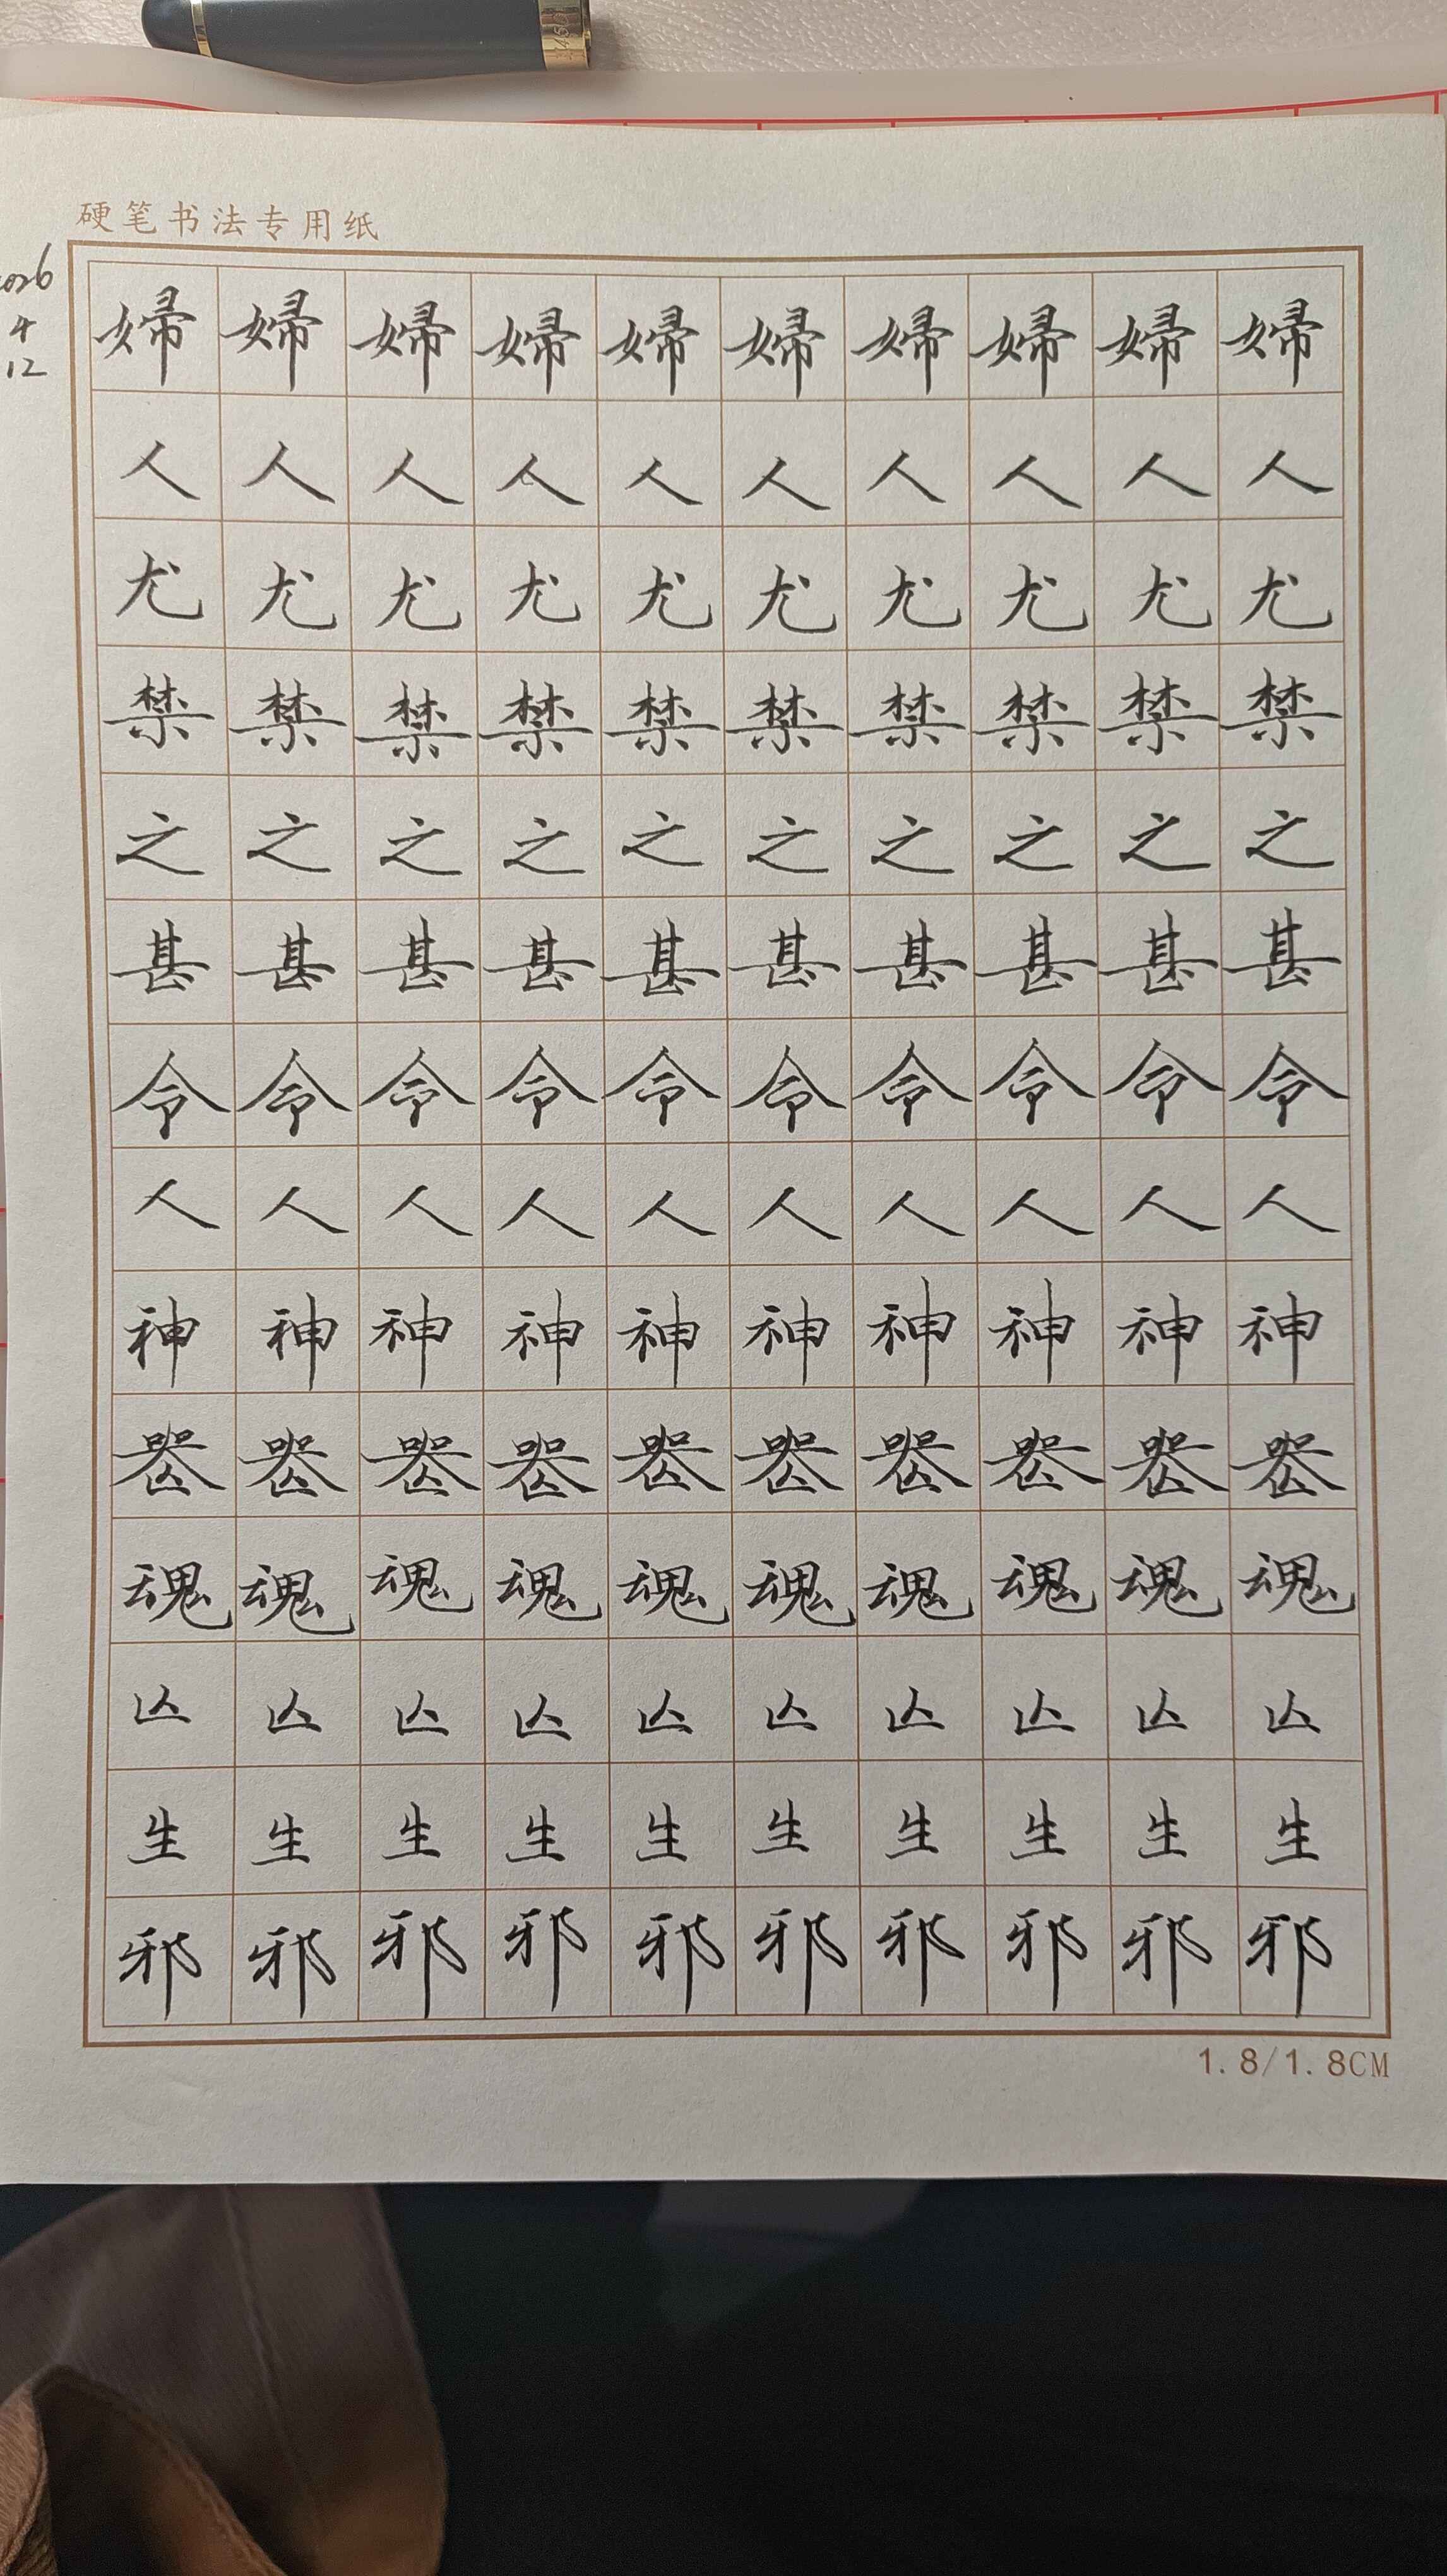 硬笔书法专用纸
2026
4
12
婦婦婦婦婦婦婦婦婦婦
人人人人人人人人人人
尤尤尤尤尤尤尤尤尤尤
禁禁禁禁禁禁禁禁禁禁
之之之之之之之之之之
甚甚甚甚甚甚甚甚甚甚
令令令令令令令令令令
人人人人人人人人人人
神神神神神神神神神神
喪喪喪喪喪喪喪喪喪喪
魂魂魂魂魂魂魂魂魂魂
亾亾亾亾亾亾亾亾亾亾
生生生生生生生生生生
邪邪邪邪邪邪邪邪邪邪
1.8/1.8CM